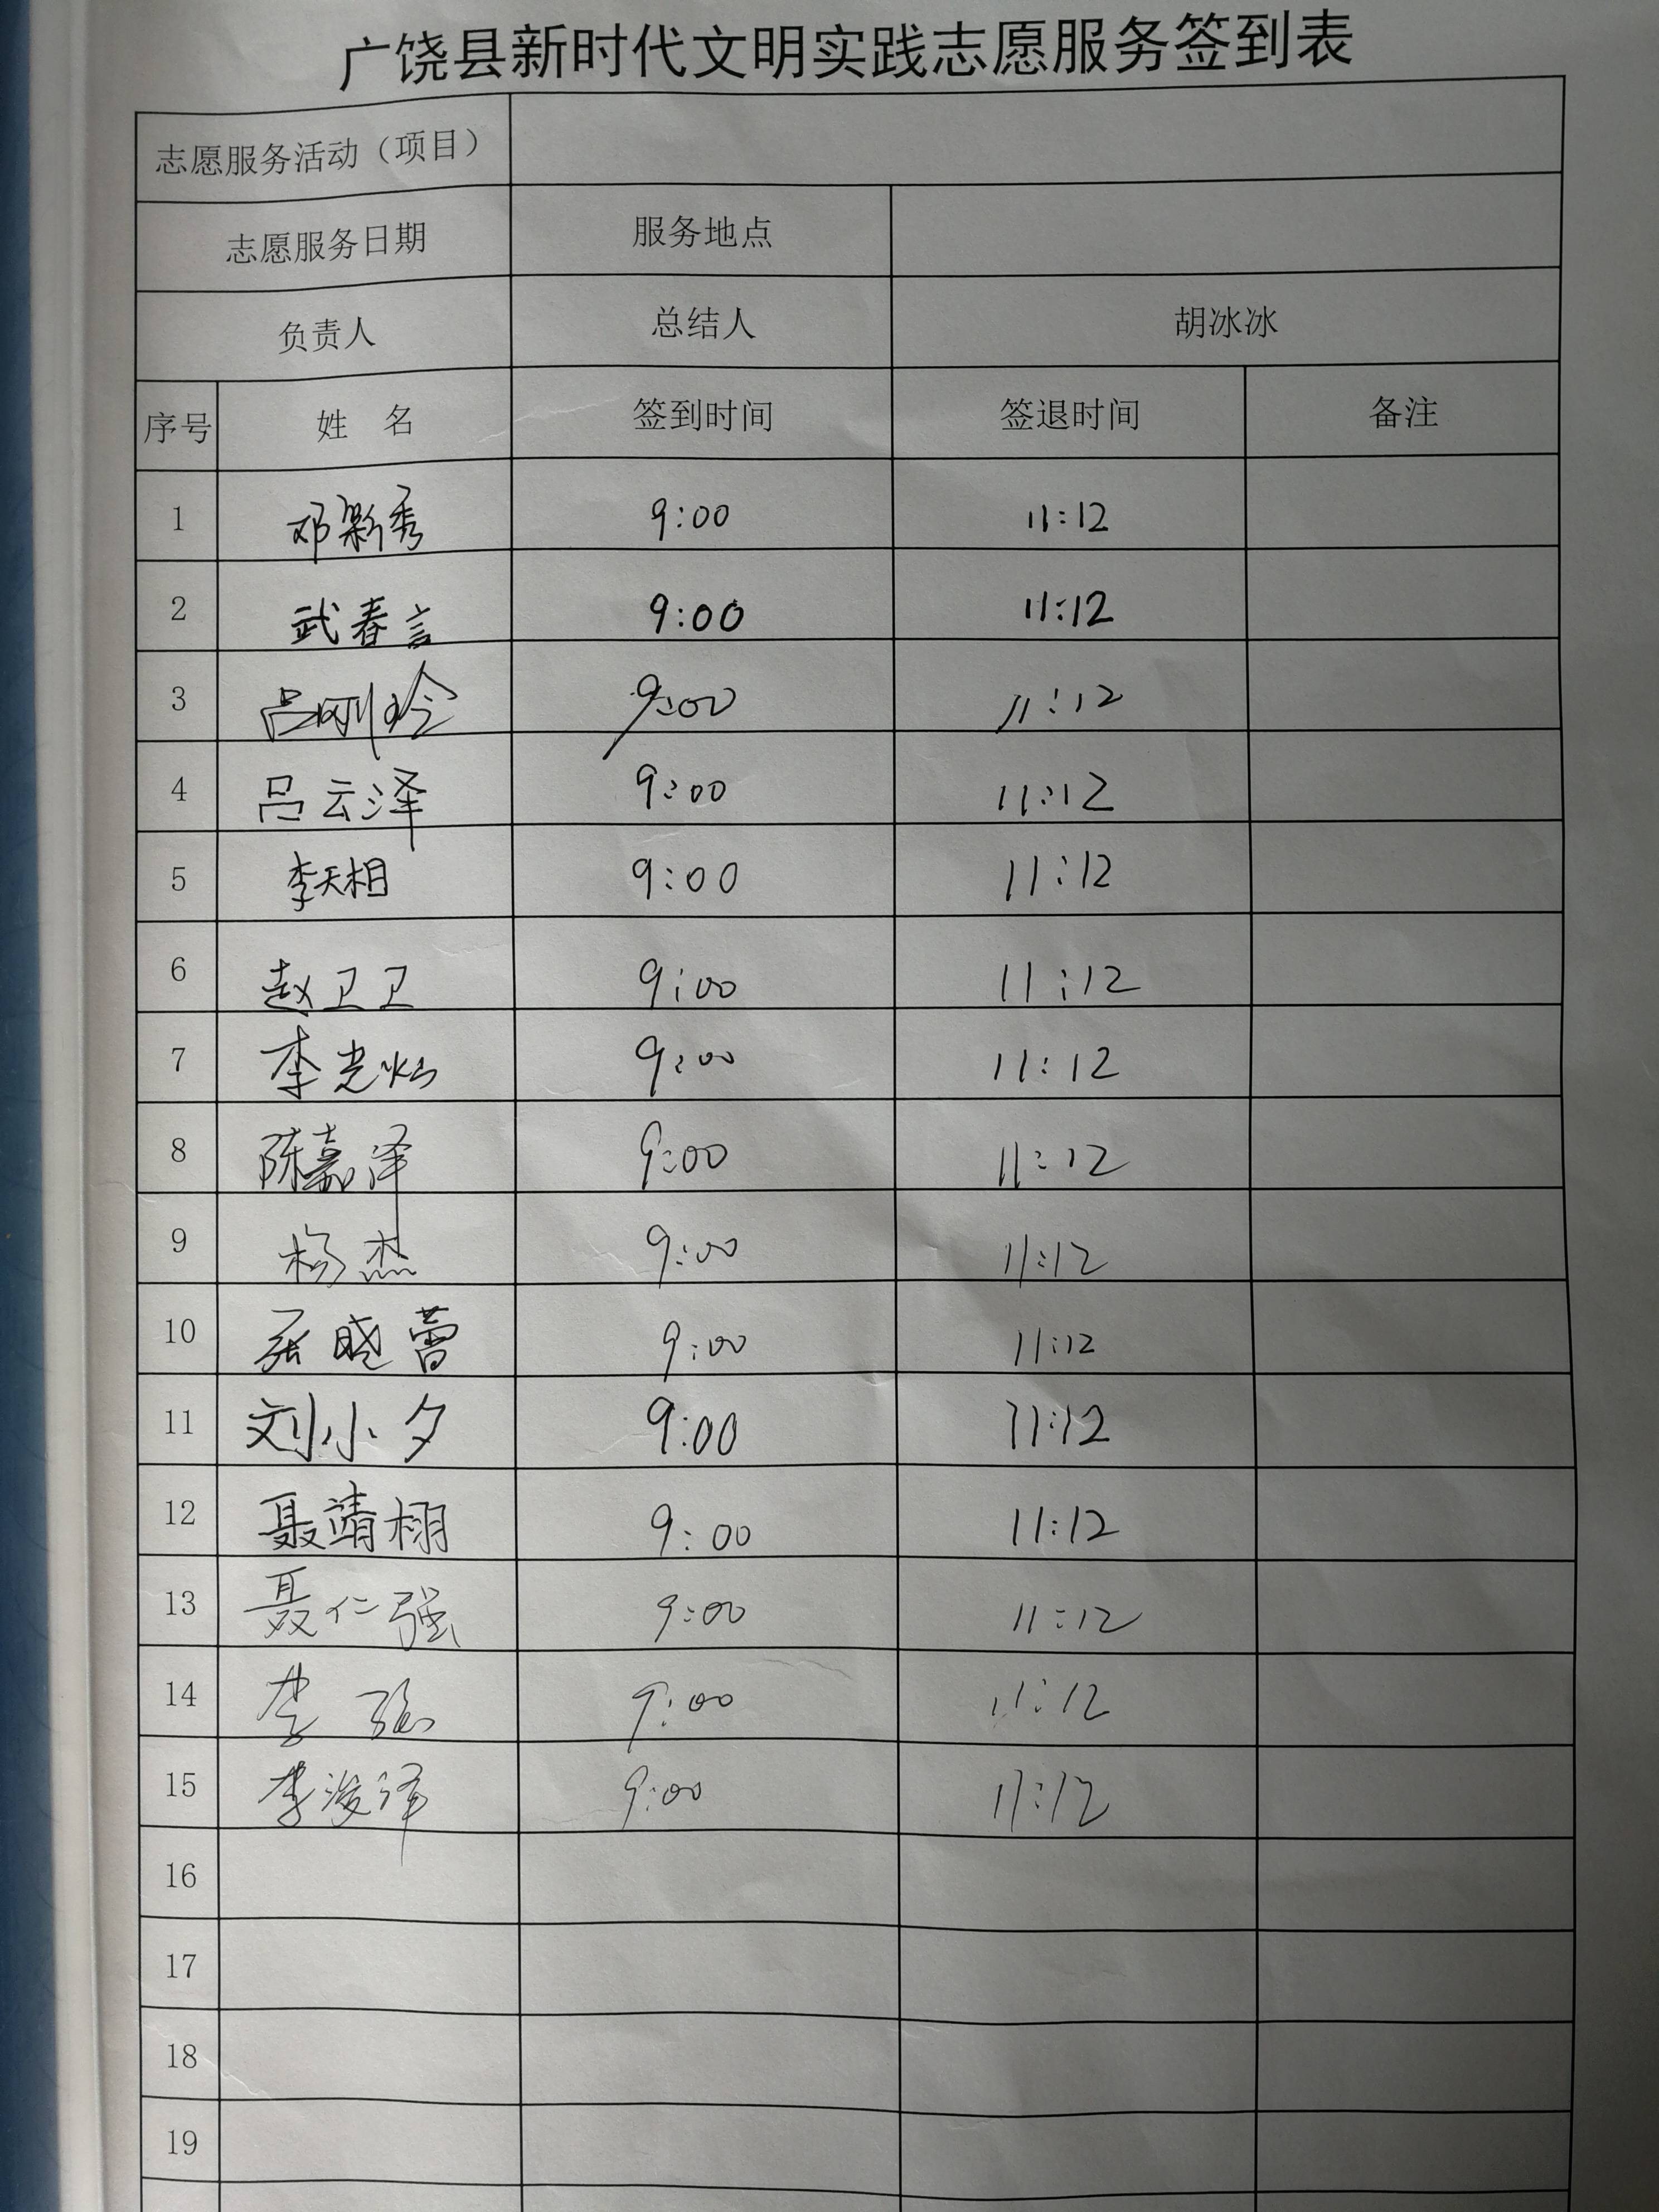 广饶县新时代文明实践志愿服务签到表
志愿服务活动（项目）
志愿服务日期 服务地点
负责人 总结人 胡冰冰
序号 姓 名 签到时间 签退时间 备注
1 邓新秀 9:00 11:12
2 武春言 9:00 11:12
3 吕刚玲 9:00 11:12
4 吕云泽 9:00 11:12
5 李天相 9:00 11:12
6 赵卫卫 9:00 11:12
7 李光灿 9:00 11:12
8 陈嘉泽 9:00 11:12
9 杨杰 9:00 11:12
10 张晓蕾 9:00 11:12
11 刘小夕 9:00 11:12
12 聂靖栩 9:00 11:12
13 聂仁强 9:00 11:12
14 李强 9:00 11:12
15 李浚泽 9:00 11:12
16
17
18
19